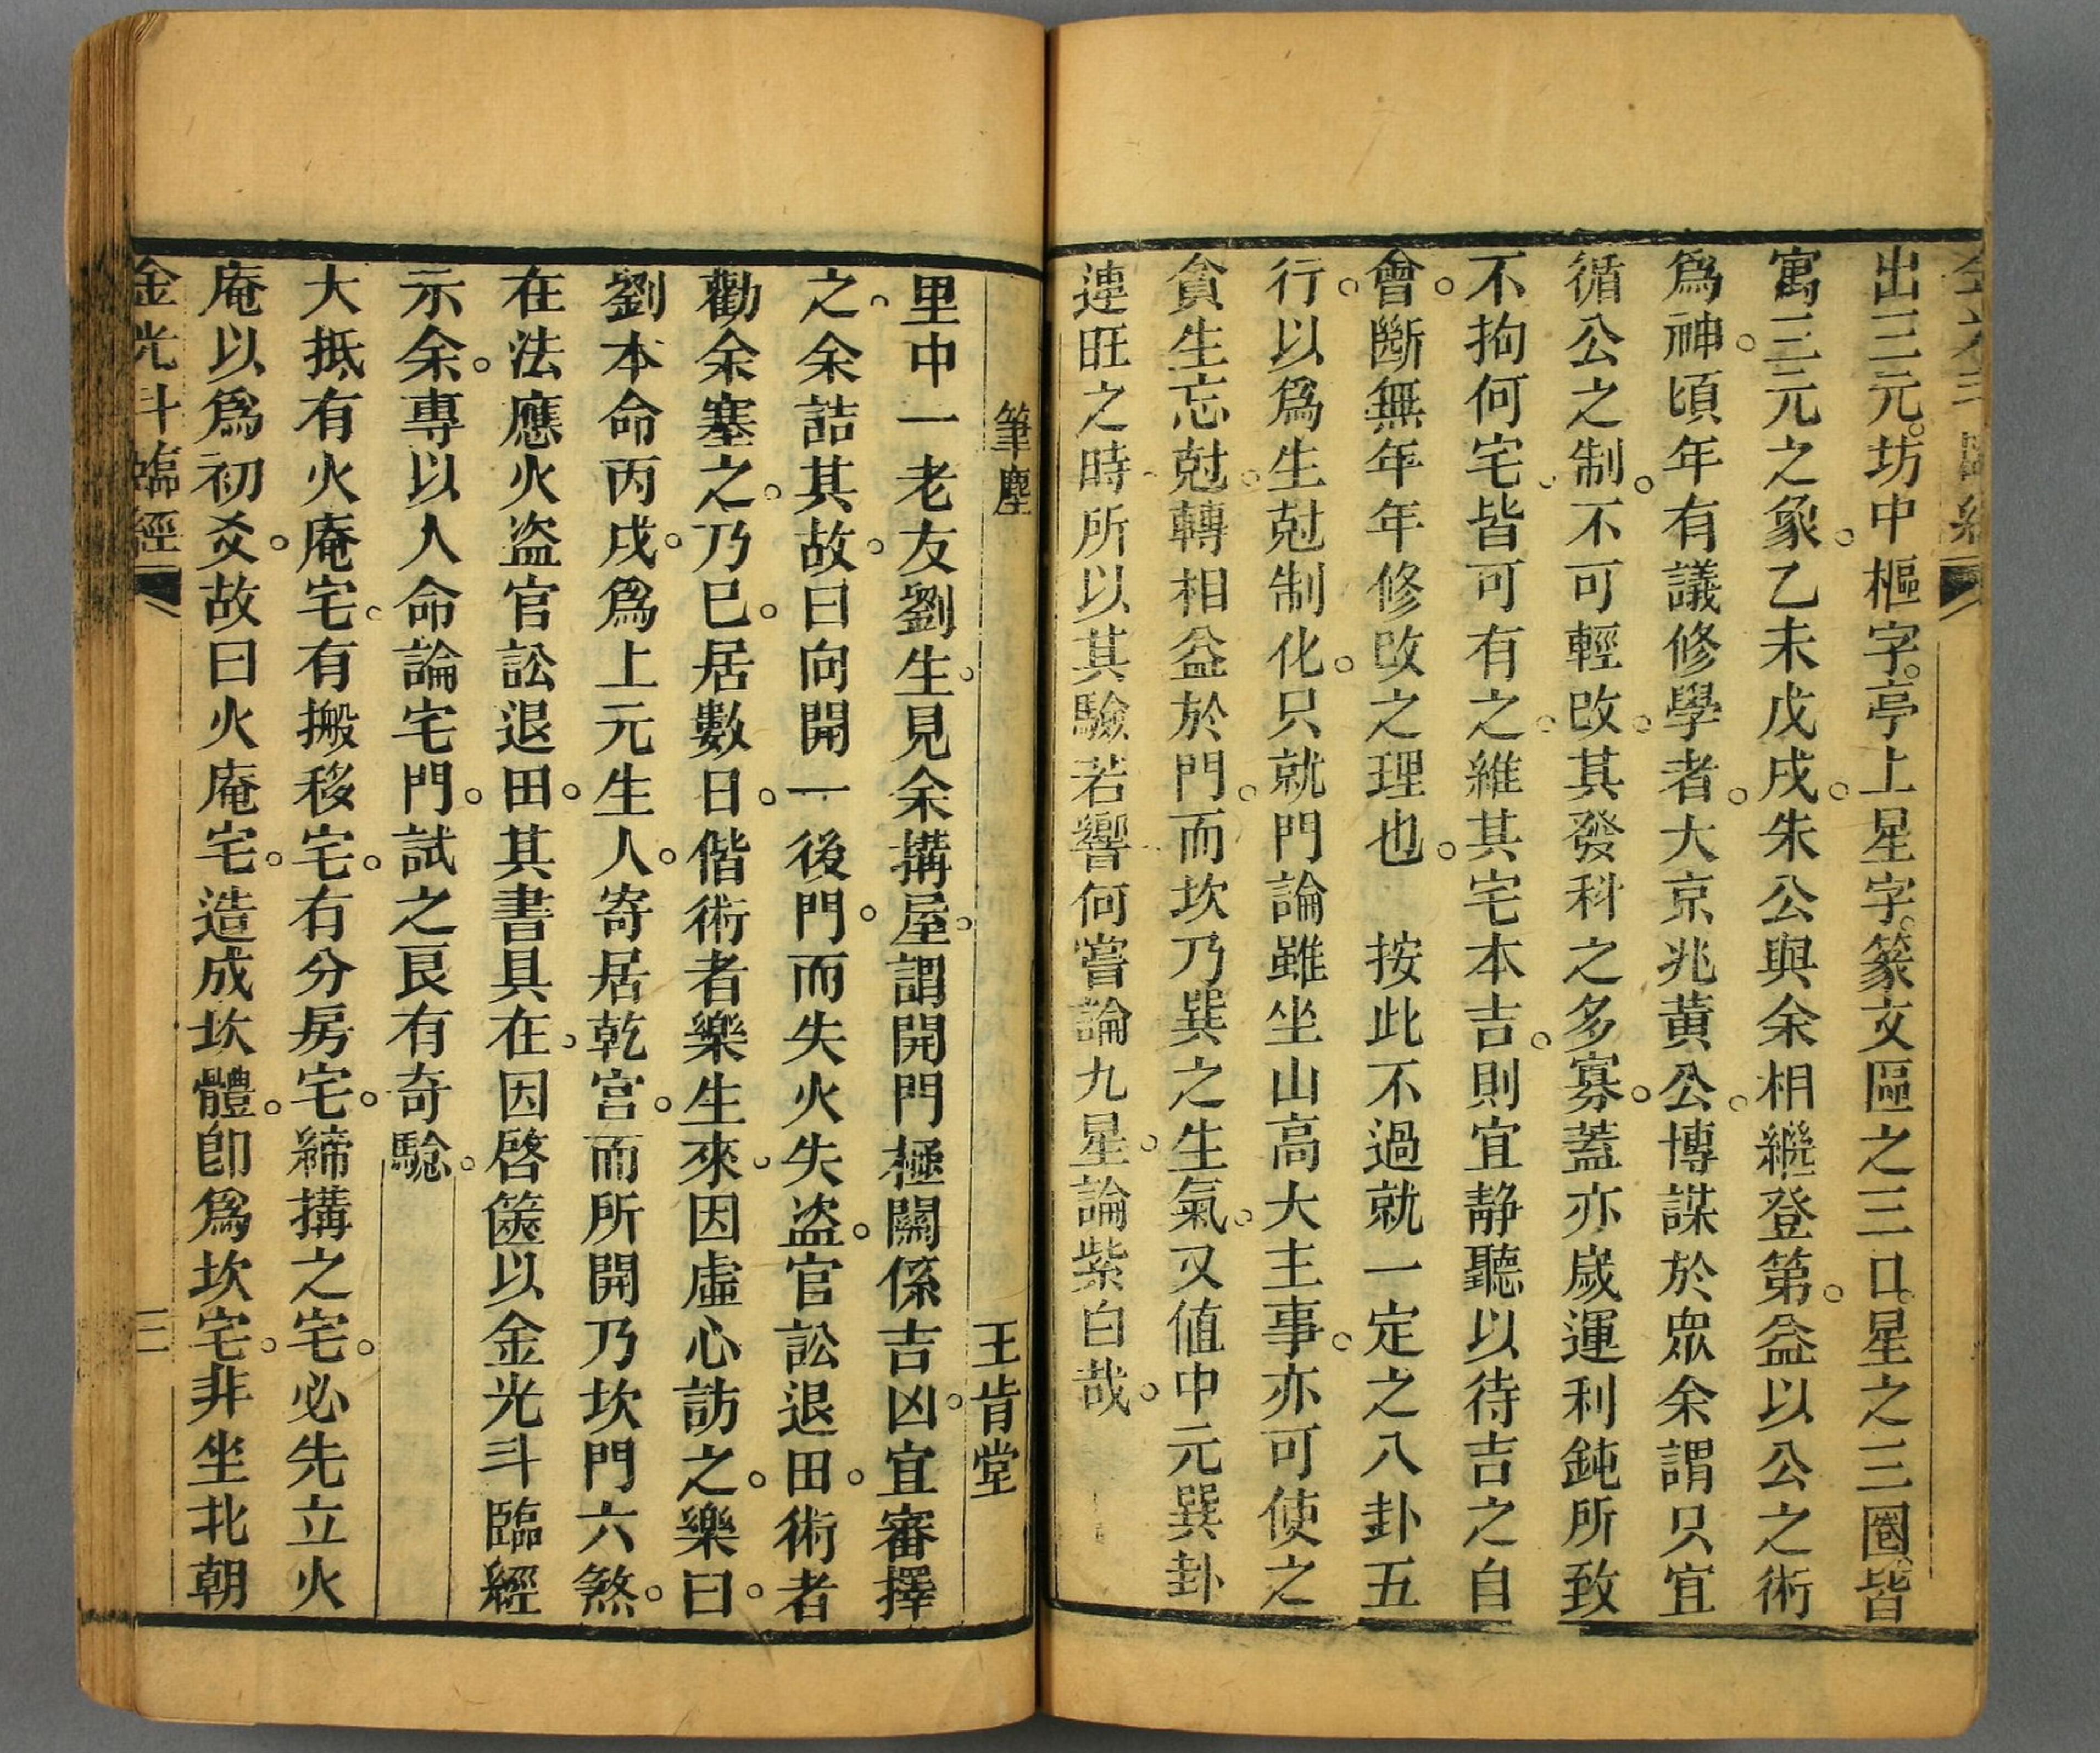 出三元坊中樞字亭上星字篆文區之三口星之三圈皆
寓三元之象乙未戊戌朱公與余相繼登第益以公之術
爲神頃年有議修學者大京兆黃公博謀於眾余謂只宜
循公之制不可輕改其發科之多寡蓋亦歲運利鈍所致
不拘何宅皆可有之維其宅本吉則宜静聽以待吉之自
會斷無年年修改之理也　按此不過就一定之八卦五
行以爲生尅制化只就門論雖坐山高大主事亦可使之
貪生忘尅轉相益於門而坎乃巽之生氣又值中元巽卦
連旺之時所以其驗若響何嘗論九星論紫白哉
筆塵　王肯堂
里中一老友劉生見余搆屋謂開門極關係吉凶宜審擇
之余詰其故曰向開一後門而失火失盗官訟退田術者
勸余塞之乃已居數日偕術者樂生來因虛心訪之樂曰
劉本命丙戌爲上元生人寄居乾宮而所開乃坎門六煞
在法應火盗官訟退田其書具在因啓篋以金光斗臨經
示余專以人命論宅門試之艮有奇驗
大抵有火庵宅有搬移宅有分房宅締搆之宅必先立火
庵以爲初爻故曰火庵宅造成坎體卽爲坎宅非坐北朝
金光斗臨經　三